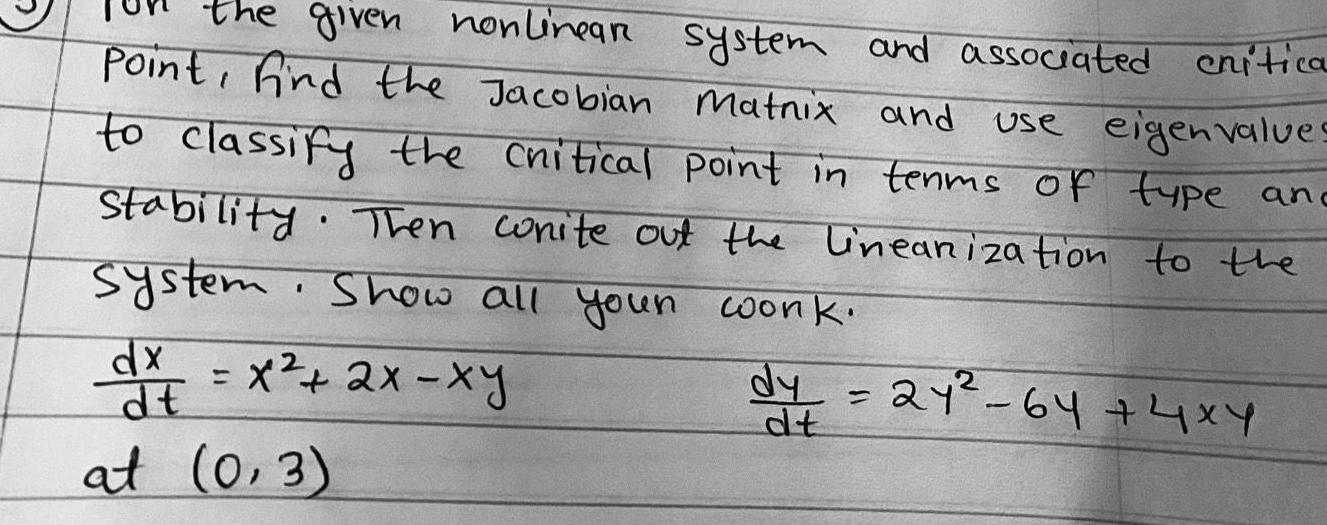 the given nonlinear system and associated critica
point, find the Jacobian Matrix and use eigenvalues
to classify the critical point in terms of type and
stability. Then write out the linearization to the
system. Show all your work.
dx/dt = x²+ 2x - xy dy/dt = 2y² - 6y + 4xy
at (0, 3)